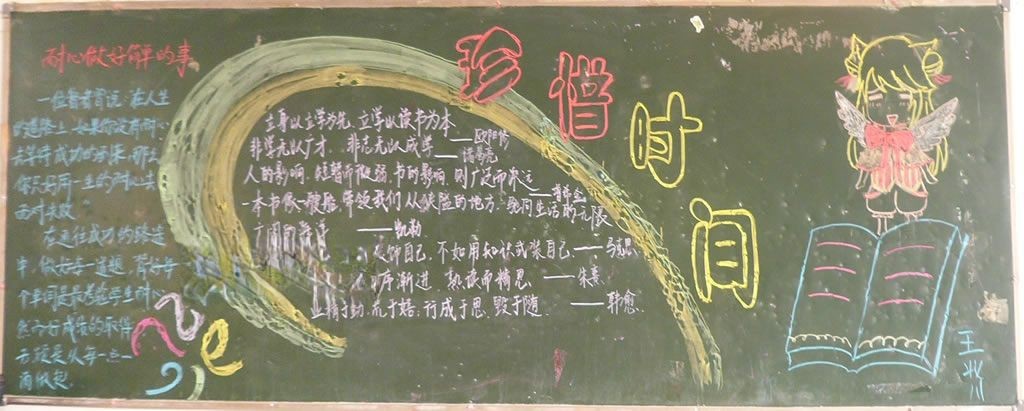 珍惜时间
耐心做好简单的事
一位智者曾说:在人生
的道路上,如果你没有耐心
去等待成功的到来,那么
你只好用一生的耐心去
面对失败
在通往成功的路途
中,做好每一道题,背好每
个单词是最考验学生耐心
的
好成绩的取得
去从每一点一
做起
立身以立学为先,立学以读书为本
——欧阳修
非学无以广才,非志无以成学
——诸葛亮
人的影响,短暂而微弱,书的影响,则广泛而深远
一本书像一艘船,带领我们从狭隘的地方,驶向生活的无限
广阔的海洋 ——凯勒
饰自己,不如用知识武装自己——马克思
序渐进,熟读而精思 ——朱熹
业精于勤,荒于嬉;行成于思,毁于随 ——韩愈
王兴